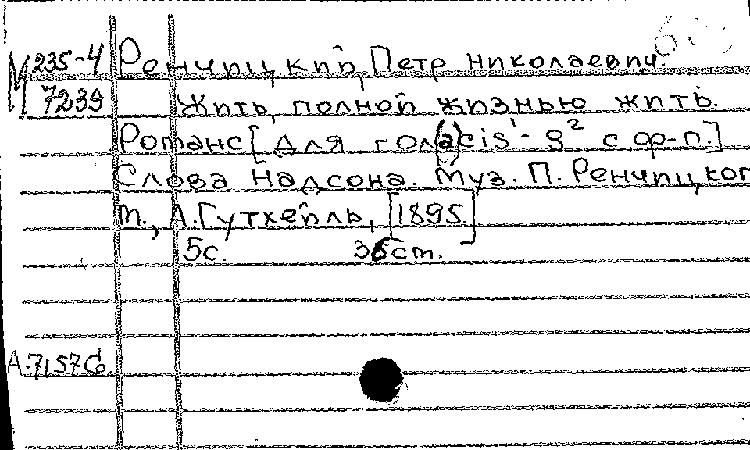 М 235-4 Ренчицкий, Петр Николаевич.
7239 Жить, полной жизнью жить.
Романс [для гол(а) cis¹- g² с ф-п.]
Слова Надсона. Муз. П. Ренчицког
М., А. Гутхейль, [1895]
5с. 36см.
А.7157б